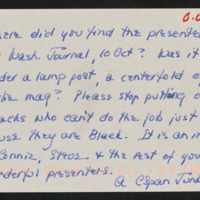 0.0
here did you find the presente
Wash. Journal, 10 Oct? Was it
der a lamp post, a centerfold of
mag? Please stop putting o
acks who can't do the job just
use they are Black. It is an in
Connie, Steve & the rest of you
derful presenters.
a CSpan Junk